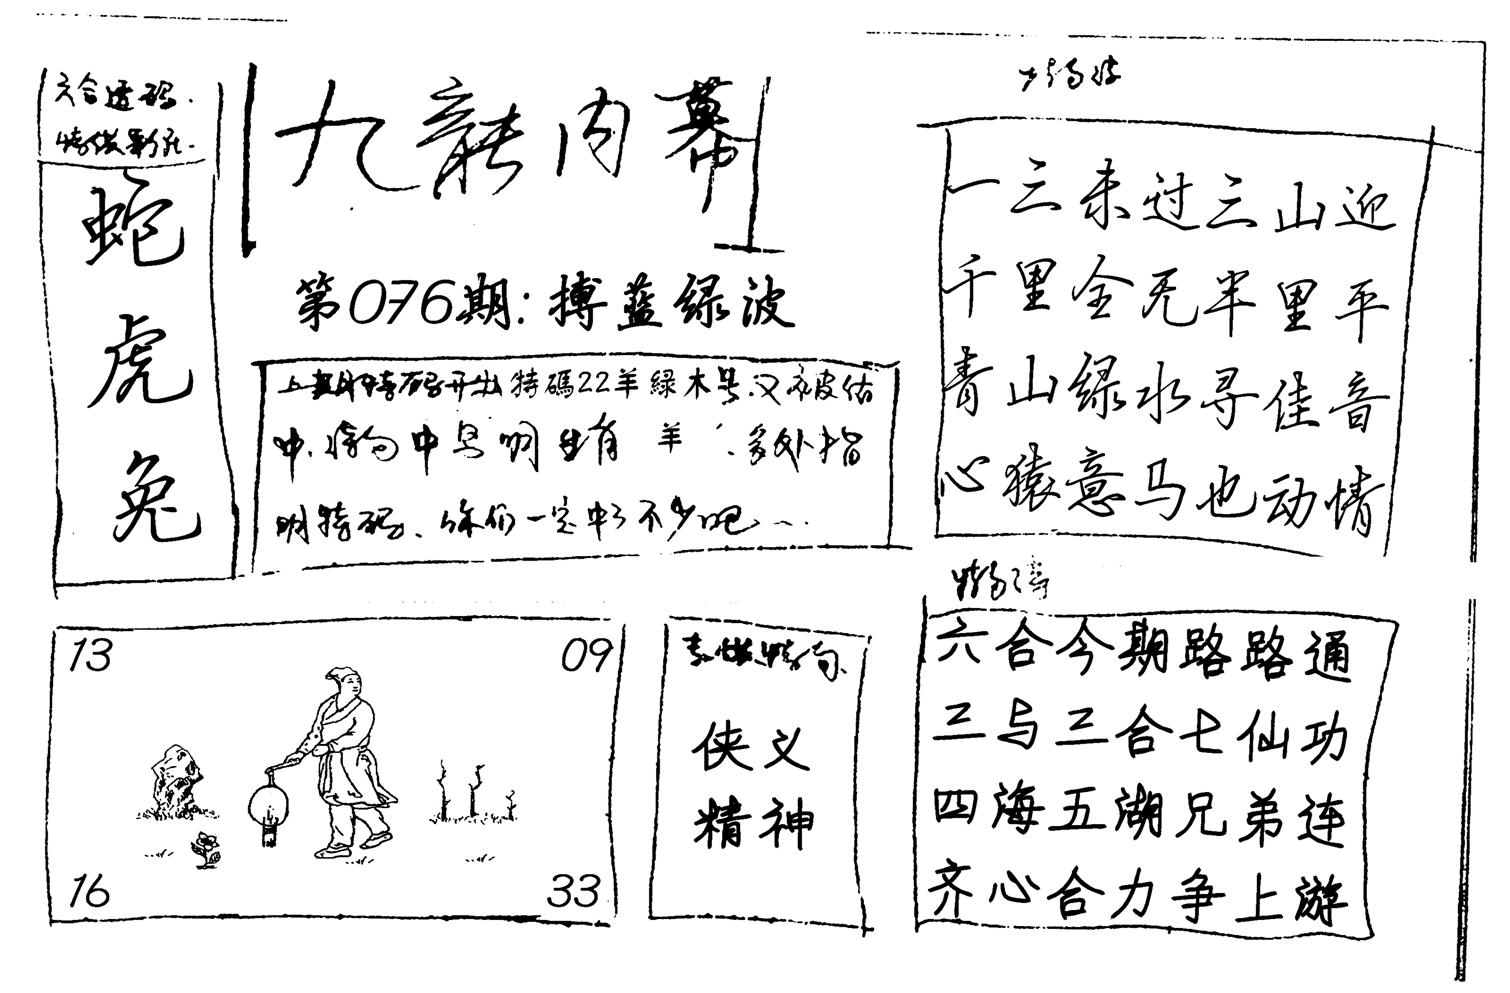 六合透码.
蛇
虎
兔
九龍内幕
第076期:搏蓝绿波
开出特碼22羊緑木号.又被估
中.中号明生肖 羊 .多外指
明特码、你们一定中了不少吧
一三未过三山迎
千里全无半里平
青山绿水寻佳音
心猿意马也动情
六合今期路路通
三与三合七仙功
四海五湖兄弟连
齐心合力争上游
13
09
16
33
侠义
精神